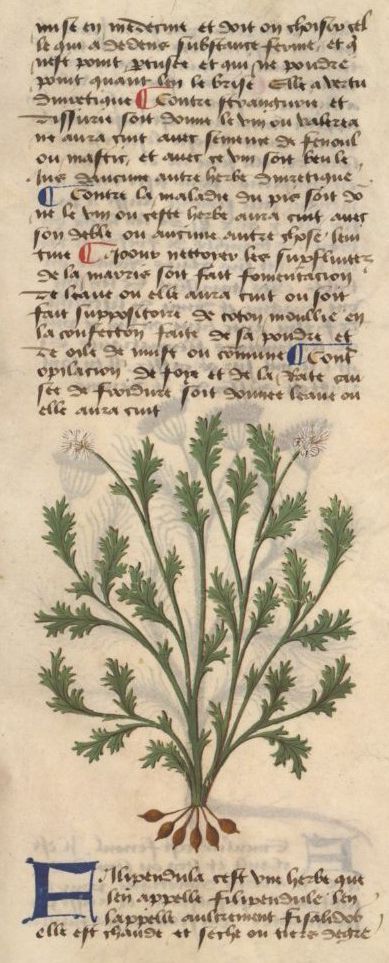 mise en medecine et doit on choisir cel
le qui a dedens substance ferme, et q̄
nest point percusee et qui ne pouldre
point quant len le brise Elle a vertu
diuretique ¶ Contre stranguirie et
dissurie soit donne le vin ou
ne aura cuit auec semence de fenoul
ou mastic, et auec ce vin soit beu le
ius daucune autre herbe diuretique
¶ Contre la maladie du pis soit do
ne le vin ou ceste herbe aura cuit auec
son deble ou aucune autre chose leni
tiue ¶ Et pour nettoyer les superfluitez
de la mavris soit fait fomentacion
de leaue ou elle aura cuit ou soit
fait suppositoire de coton moullie en
la confection faite de sa poudre et
de oile de musc ou comune ¶ Contr
opilacion de foye et de la Rate cau
see de froidure soit donnee leaue ou
elle aura cuit
Filipendula cest vne herbe que
len appelle filipendule len
lappelle aultrement fisalidos
elle est chaude et seche ou tiers degre